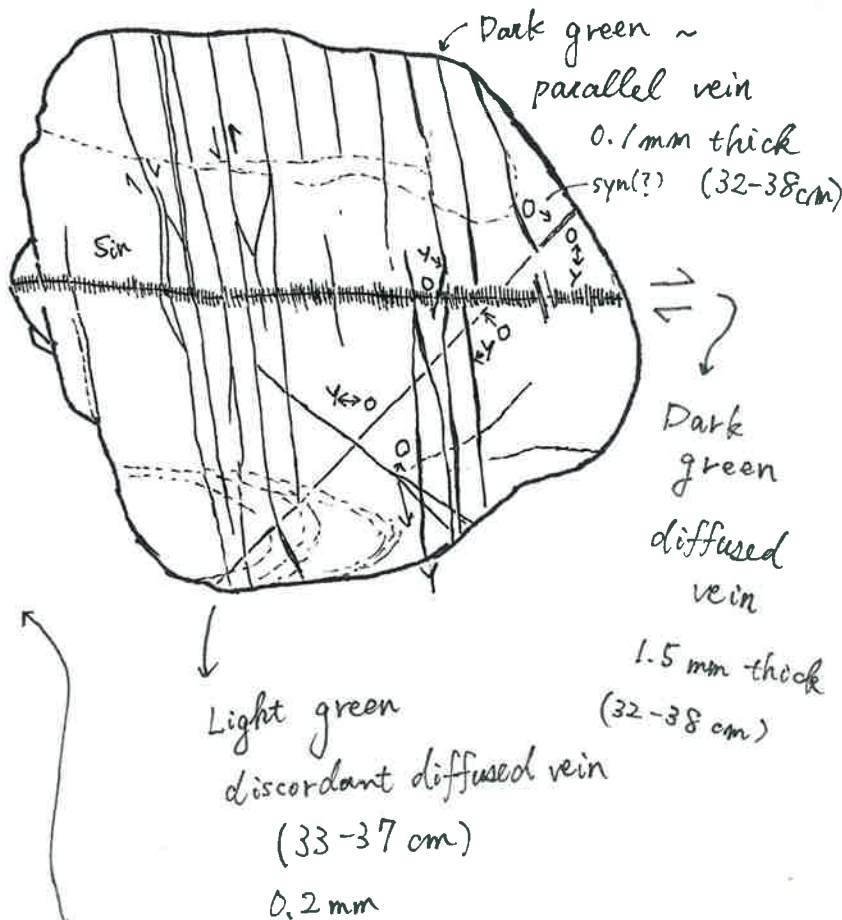 Dark green ~
parallel vein
0.1mm thick
syn(?) (32-38cm)
O
O↔Y
Sin
Y
O
O
Y
Y↔O
O
Y
Dark
green
diffused
vein
1.5 mm thick
(32-38 cm)
Light green
discordant diffused vein
(33-37 cm)
0.2 mm